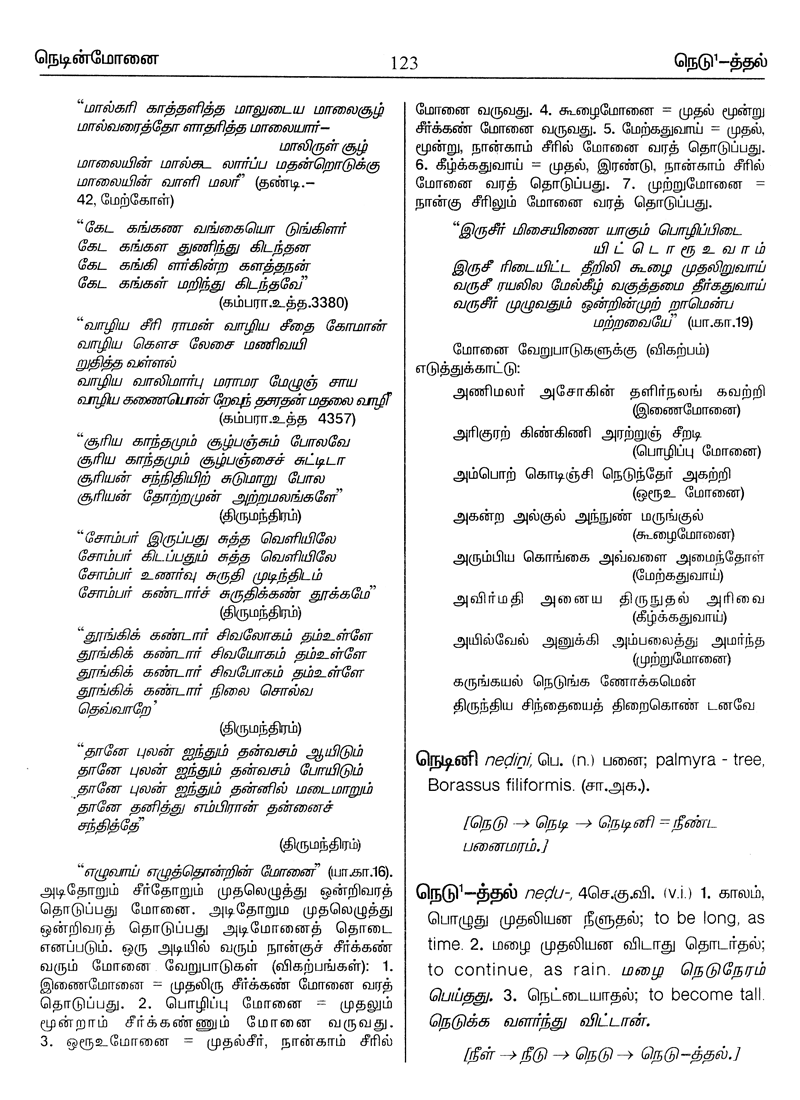 நெடின்மோனை
123
நெடு¹–த்தல்
“மால்கரி காத்தளித்த மாலுடைய மாலைசூழ்
மால்வரைத்தோ ளாதரித்த மாலையார்–
மாலிருள் சூழ்
மாலையின் மால்கட லார்ப்ப மதன்றொடுக்கு
மாலையின் வாளி மலர்” (தண்டி.–
42, மேற்கோள்)
“கேட கங்கண வங்கையொ டுங்கிளர்
கேட கங்கள துணிந்து கிடந்தன
கேட கங்கி ளர்கின்ற களத்தநன்
கேட கங்கள் மறிந்து கிடந்தவே”
(கம்பரா.உத்த.3380)
“வாழிய சீரி ராமன் வாழிய சீதை கோமான்
வாழிய கௌச லேசை மணிவயி
றுதித்த வள்ளல்
வாழிய வாலிமார்பு மராமர மேழுஞ் சாய
வாழிய கணையொன் றேவுந் தசரதன் மதலை வாழி”
(கம்பரா.உத்த 4357)
“சூரிய காந்தமும் சூழ்பஞ்சும் போலவே
சூரிய காந்தமும் சூழ்பஞ்சைச் சுட்டிடா
சூரியன் சந்நிதியிற் சுடுமாறு போல
சூரியன் தோற்றமுன் அற்றமலங்களே”
(திருமந்திரம்)
“சோம்பர் இருப்பது சுத்த வெளியிலே
சோம்பர் கிடப்பதும் சுத்த வெளியிலே
சோம்பர் உணர்வு சுருதி முடிந்திடம்
சோம்பர் கண்டார்ச் சுருதிக்கண் தூக்கமே”
(திருமந்திரம்)
“தூங்கிக் கண்டார் சிவலோகம் தம்உள்ளே
தூங்கிக் கண்டார் சிவயோகம் தம்உள்ளே
தூங்கிக் கண்டார் சிவபோகம் தம்உள்ளே
தூங்கிக் கண்டார் நிலை சொல்வ
தெவ்வாறே’
(திருமந்திரம்)
“தானே புலன் ஐந்தும் தன்வசம் ஆயிடும்
தானே புலன் ஐந்தும் தன்வசம் போயிடும்
தானே புலன் ஐந்தும் தன்னில் மடைமாறும்
தானே தனித்து எம்பிரான் தன்னைச்
சந்தித்தே”
(திருமந்திரம்)
“எழுவாய் எழுத்தொன்றின் மோனை” (யா.கா.16).
அடிதோறும் சீர்தோறும் முதலெழுத்து ஒன்றிவரத்
தொடுப்பது மோனை. அடிதோறும முதலெழுத்து
ஒன்றிவரத் தொடுப்பது அடிமோனைத் தொடை
எனப்படும். ஒரு அடியில் வரும் நான்குச் சீர்க்கண்
வரும் மோனை வேறுபாடுகள் (விகற்பங்கள்): 1.
இணைமோனை = முதலிரு சீர்க்கண் மோனை வரத்
தொடுப்பது. 2. பொழிப்பு மோனை = முதலும்
மூன்றாம் சீர்க்கண்ணும் மோனை வருவது.
3. ஒரூஉமோனை = முதல்சீர், நான்காம் சீரில்
மோனை வருவது. 4. கூழைமோனை = முதல் மூன்று
சீர்க்கண் மோனை வருவது. 5. மேற்கதுவாய் = முதல்,
மூன்று, நான்காம் சீரில் மோனை வரத் தொடுப்பது.
6. கீழ்க்கதுவாய் = முதல், இரண்டு, நான்காம் சீரில்
மோனை வரத் தொடுப்பது. 7. முற்றுமோனை =
நான்கு சீரிலும் மோனை வரத் தொடுப்பது.
“இருசீர் மிசையிணை யாகும் பொழிப்பிடை
யிட்டொரூஉவாம்
இருசீ ரிடையிட்ட தீறிலி கூழை முதலிறுவாய்
வருசீ ரயலில மேல்கீழ் வகுத்தமை தீர்கதுவாய்
வருசீர் முழுவதும் ஒன்றின்முற் றாமென்ப
மற்றவையே” (யா.கா.19)
மோனை வேறுபாடுகளுக்கு (விகற்பம்)
எடுத்துக்காட்டு:
அணிமலர் அசோகின் தளிர்நலங் கவற்றி
(இணைமோனை)
அரிகுரற் கிண்கிணி அரற்றுஞ் சீறடி
(பொழிப்பு மோனை)
அம்பொற் கொடிஞ்சி நெடுந்தேர் அகற்றி
(ஒரூஉ மோனை)
அகன்ற அல்குல் அந்நுண் மருங்குல்
(கூழைமோனை)
அரும்பிய கொங்கை அவ்வளை அமைந்தோள்
(மேற்கதுவாய்)
அவிர்மதி அனைய திருநுதல் அரிவை
(கீழ்க்கதுவாய்)
அயில்வேல் அனுக்கி அம்பலைத்து அமர்ந்த
(முற்றுமோனை)
கருங்கயல் நெடுங்க ணோக்கமென்
திருந்திய சிந்தையைத் திறைகொண் டனவே
நெடினி neḍiṉi, பெ. (n.) பனை; palmyra - tree,
Borassus filiformis. (சா.அக.).
[நெடு → நெடி → நெடினி = நீண்ட
பனைமரம்.]
நெடு¹–த்தல் neḍu-, 4செ.கு.வி. (v.i.) 1. காலம்,
பொழுது முதலியன நீளுதல்; to be long, as
time. 2. மழை முதலியன விடாது தொடர்தல்;
to continue, as rain. மழை நெடுநேரம்
பெய்தது. 3. நெட்டையாதல்; to become tall.
நெடுக்க வளர்ந்து விட்டான்.
[நீள் → நீடு → நெடு → நெடு–த்தல்.]